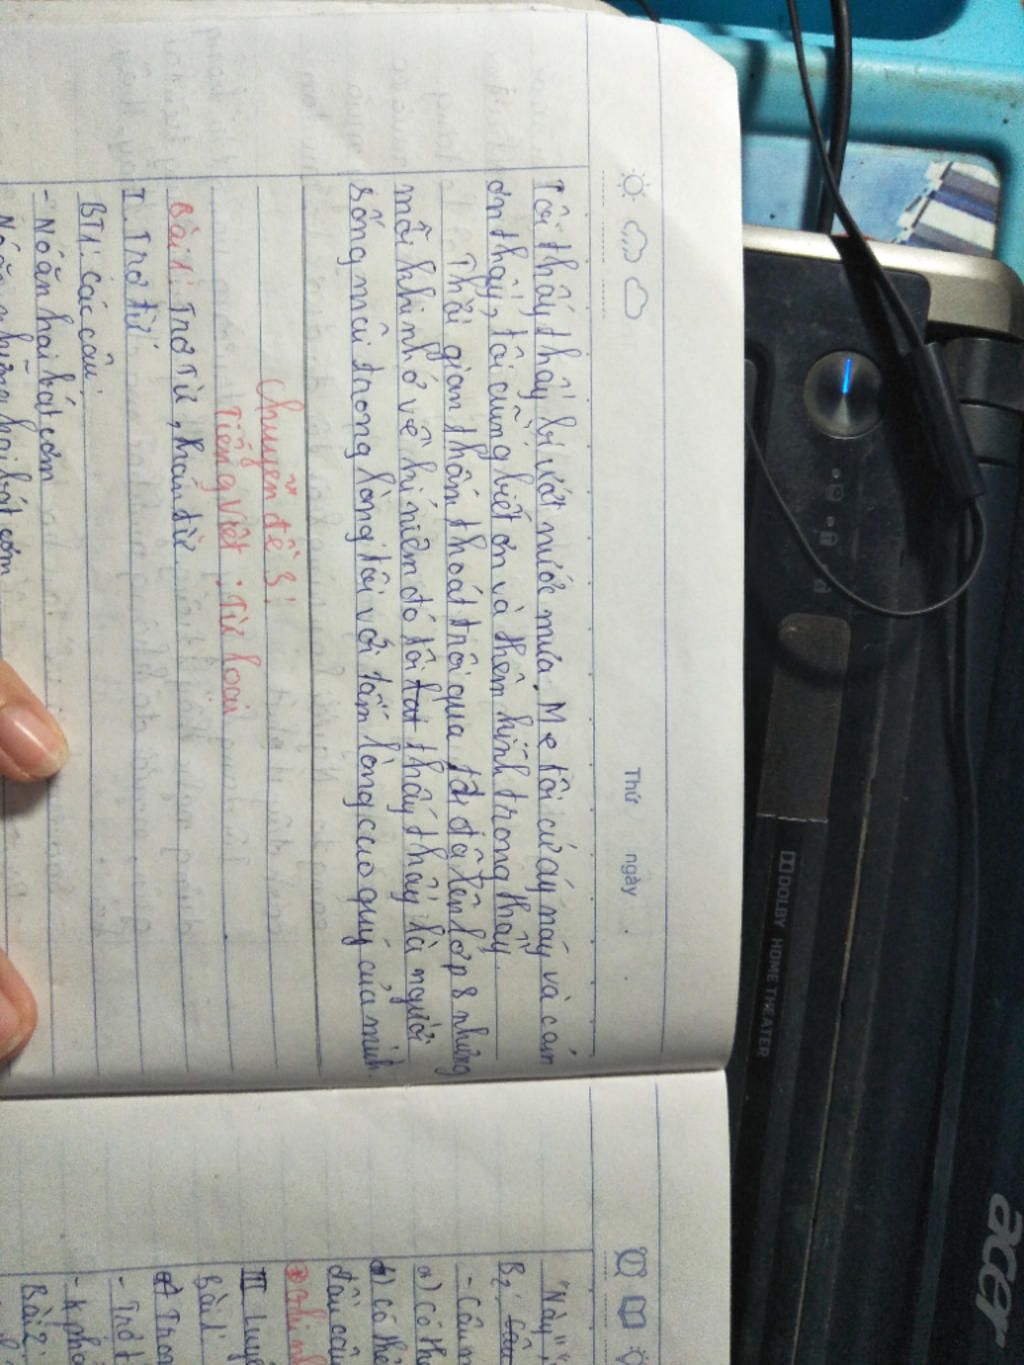 Thứ ngày
Tôi thấy thầy bị ướt nước mưa. Mẹ tôi cứ áy náy và cảm
ơn thầy, tôi cũng biết ơn và thêm kính trọng thầy.
Thời gian thấm thoát trôi qua tôi đã lên lớp 8 nhưng
mỗi khi nhớ về kỉ niệm đó tôi thấy thầy là người
sống mãi trong lòng tôi với tấm lòng cao quý của mình.
Chuyên đề 3:
Tiếng Việt: Từ loại
Bài 1: Trợ Từ, thán từ.
I. Trợ từ
BT1: Các câu:
- Nó ăn hai bát cơm
Nó ăn những hai bát cơm
"Này"
B2: Câu
- Câu
a) Có th
b) có thể
đầu câu
Ghi nh
III Luyệ
Bài 1:
a) Tron
- Trợ t
- K phả
Bài 2:
DOLBY HOME THEATER
acer